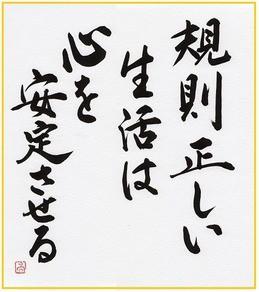 規則正しい
生活は
心を
安定させる